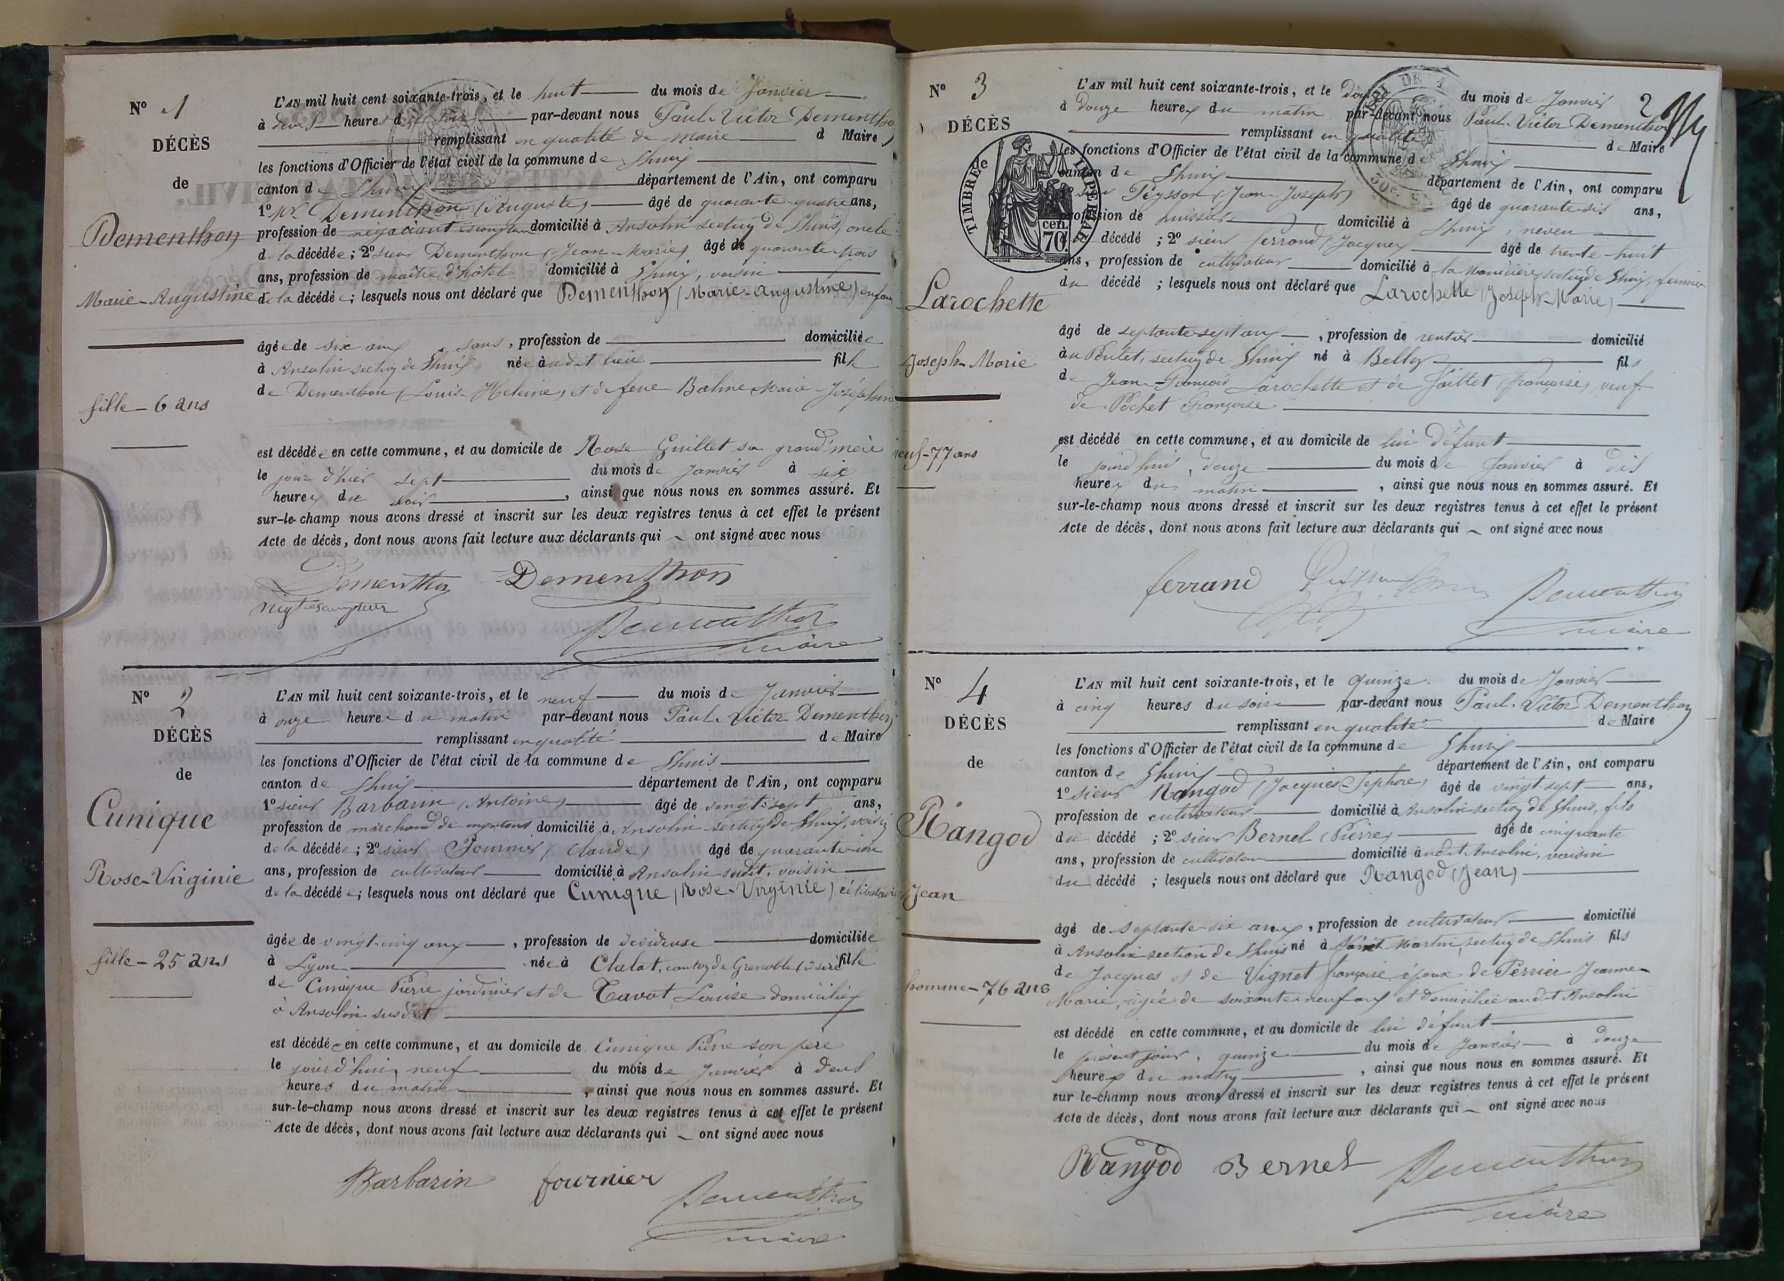 N° 1
DÉCÈS
de
Dementhon
Marie-Augustine
fille - 6 ans
L'AN mil huit cent soixante-trois, et le huit du mois de Janvier
à deux heures du soir par-devant nous Paul-Victor Dementhon
remplissant en qualité de maire d Maire
les fonctions d'Officier de l'état civil de la commune de Lhuis
canton de Lhuis département de l'Ain, ont comparu
1° Dementhon (Auguste) âgé de quarante-quatre ans,
profession de négociant domicilié à Ansolin section de Lhuis, oncle
de la décédée; 2° sieur Dementhon (Jean-Marie) âgé de quarante-trois
ans, profession de maître d'hôtel domicilié à Lhuis, voisin
de la décédée; lesquels nous ont déclaré que Dementhon (Marie-Augustine) enfant
âgée de six ans, sans, profession de domiciliée
à Ansolin section de Lhuis née audit lieu fille
de Dementhon (Louis-) et de feue Marie-Joséphine
est décédée en cette commune, et au domicile de Rose Guillet sa grand'mère
le jour d'hier sept du mois de janvier à six
heures du soir, ainsi que nous nous en sommes assuré. Et
sur-le-champ nous avons dressé et inscrit sur les deux registres tenus à cet effet le présent
Acte de décès, dont nous avons fait lecture aux déclarants qui ont signé avec nous
Dementhon Dementhon
Dementhon
maire
N° 2
DÉCÈS
de
Cunique
Rose-Virginie
fille - 25 ans
L'AN mil huit cent soixante-trois, et le neuf du mois de Janvier
à onze heures du matin par-devant nous Paul-Victor Dementhon
remplissant en qualité de Maire
les fonctions d'Officier de l'état civil de la commune de Lhuis
canton de Lhuis département de l'Ain, ont comparu
1° sieur Barbarin (Antoine) âgé de vingt-sept ans,
profession de marchand de domicilié à Ansolin section de Lhuis, voisin
de la décédée; 2° sieur Fournier (Claude) âgé de quarante-un
ans, profession de cultivateur domicilié à Ansolin susdit, voisin
de la décédée; lesquels nous ont déclaré que Cunique (Rose-Virginie) célibataire
âgée de vingt-cinq ans, profession de dévideuse domiciliée
à Lyon née à Chalat, canton de Grenoble (Isère) fille
de Cunique Pierre jardinier et de Cavat Louise domiciliés
à Ansolin susdit
est décédée en cette commune, et au domicile de Cunique Pierre son père
le jourd'hui neuf du mois de Janvier à deux
heures du matin, ainsi que nous nous en sommes assuré. Et
sur-le-champ nous avons dressé et inscrit sur les deux registres tenus à cet effet le présent
Acte de décès, dont nous avons fait lecture aux déclarants qui ont signé avec nous
Barbarin fournier
Dementhon
maire
N° 3
DÉCÈS
TIMBRE IMPÉRIAL
70 cen.
Larochette
Joseph-Marie
veuf - 77 ans
2
L'AN mil huit cent soixante-trois, et le douze du mois de Janvier
à douze heures du matin par-devant nous Paul-Victor Dementhon
remplissant en qualité de Maire
les fonctions d'Officier de l'état civil de la commune de Lhuis
canton de Lhuis département de l'Ain, ont comparu
Peysson (Jean-Joseph) âgé de quarante-six ans,
profession de huissier domicilié à Lhuis, neveu
du décédé; 2° sieur ferrand (Jacques) âgé de trente-huit
ans, profession de cultivateur domicilié à la section de Lhuis, fermier
du décédé; lesquels nous ont déclaré que Larochette (Joseph-Marie)
âgé de septante-sept ans, profession de rentier domicilié
au section de Lhuis né à Belley fils
de Jean-François Larochette et de (Françoise) veuf
de Pochet Françoise
est décédé en cette commune, et au domicile de lui défunt
le jourd'hui, douze du mois de Janvier à dix
heures du matin, ainsi que nous nous en sommes assuré. Et
sur-le-champ nous avons dressé et inscrit sur les deux registres tenus à cet effet le présent
Acte de décès, dont nous avons fait lecture aux déclarants qui ont signé avec nous
ferrand Dementhon
maire
N° 4
DÉCÈS
de
Rangod
Jean
homme - 76 ans
L'AN mil huit cent soixante-trois, et le quinze du mois de Janvier
à cinq heures du soir par-devant nous Paul-Victor Dementhon
remplissant en qualité de Maire
les fonctions d'Officier de l'état civil de la commune de Lhuis
canton de Lhuis département de l'Ain, ont comparu
1° sieur Rangod (Jacques) âgé de vingt-sept ans,
profession de cultivateur domicilié à Ansolin section de Lhuis, fils
du décédé; 2° sieur Bernel (Pierre) âgé de cinquante
ans, profession de cultivateur domicilié audit Ansolin, voisin
du décédé; lesquels nous ont déclaré que Rangod (Jean)
âgé de septante-six ans, profession de cultivateur domicilié
à Ansolin section de Lhuis né à Saint Martin, section de Lhuis fils
de Jacques et de Vignet françoise époux de Perrier Jeanne-
Marie, âgée de soixante-neuf ans et domiciliée audit Ansolin
est décédé en cette commune, et au domicile de lui défunt
le présent jour, quinze du mois de Janvier à douze
heures du matin, ainsi que nous nous en sommes assuré. Et
sur le-champ nous avons dressé et inscrit sur les deux registres tenus à cet effet le présent
Acte de décès, dont nous avons fait lecture aux déclarants qui ont signé avec nous
Rangod Bernel Dementhon
maire